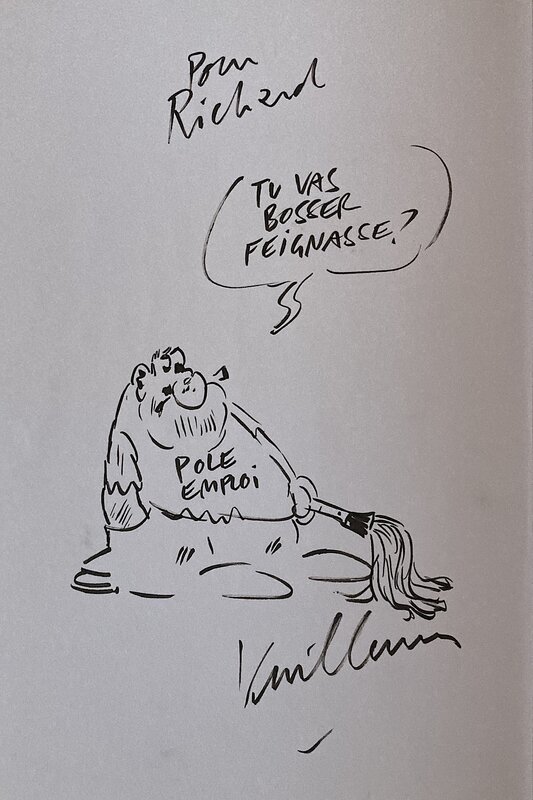 Pour
Richard
TU VAS
BOSSER
FEIGNASSE?
POLE
EMPLOI
Vuillemin